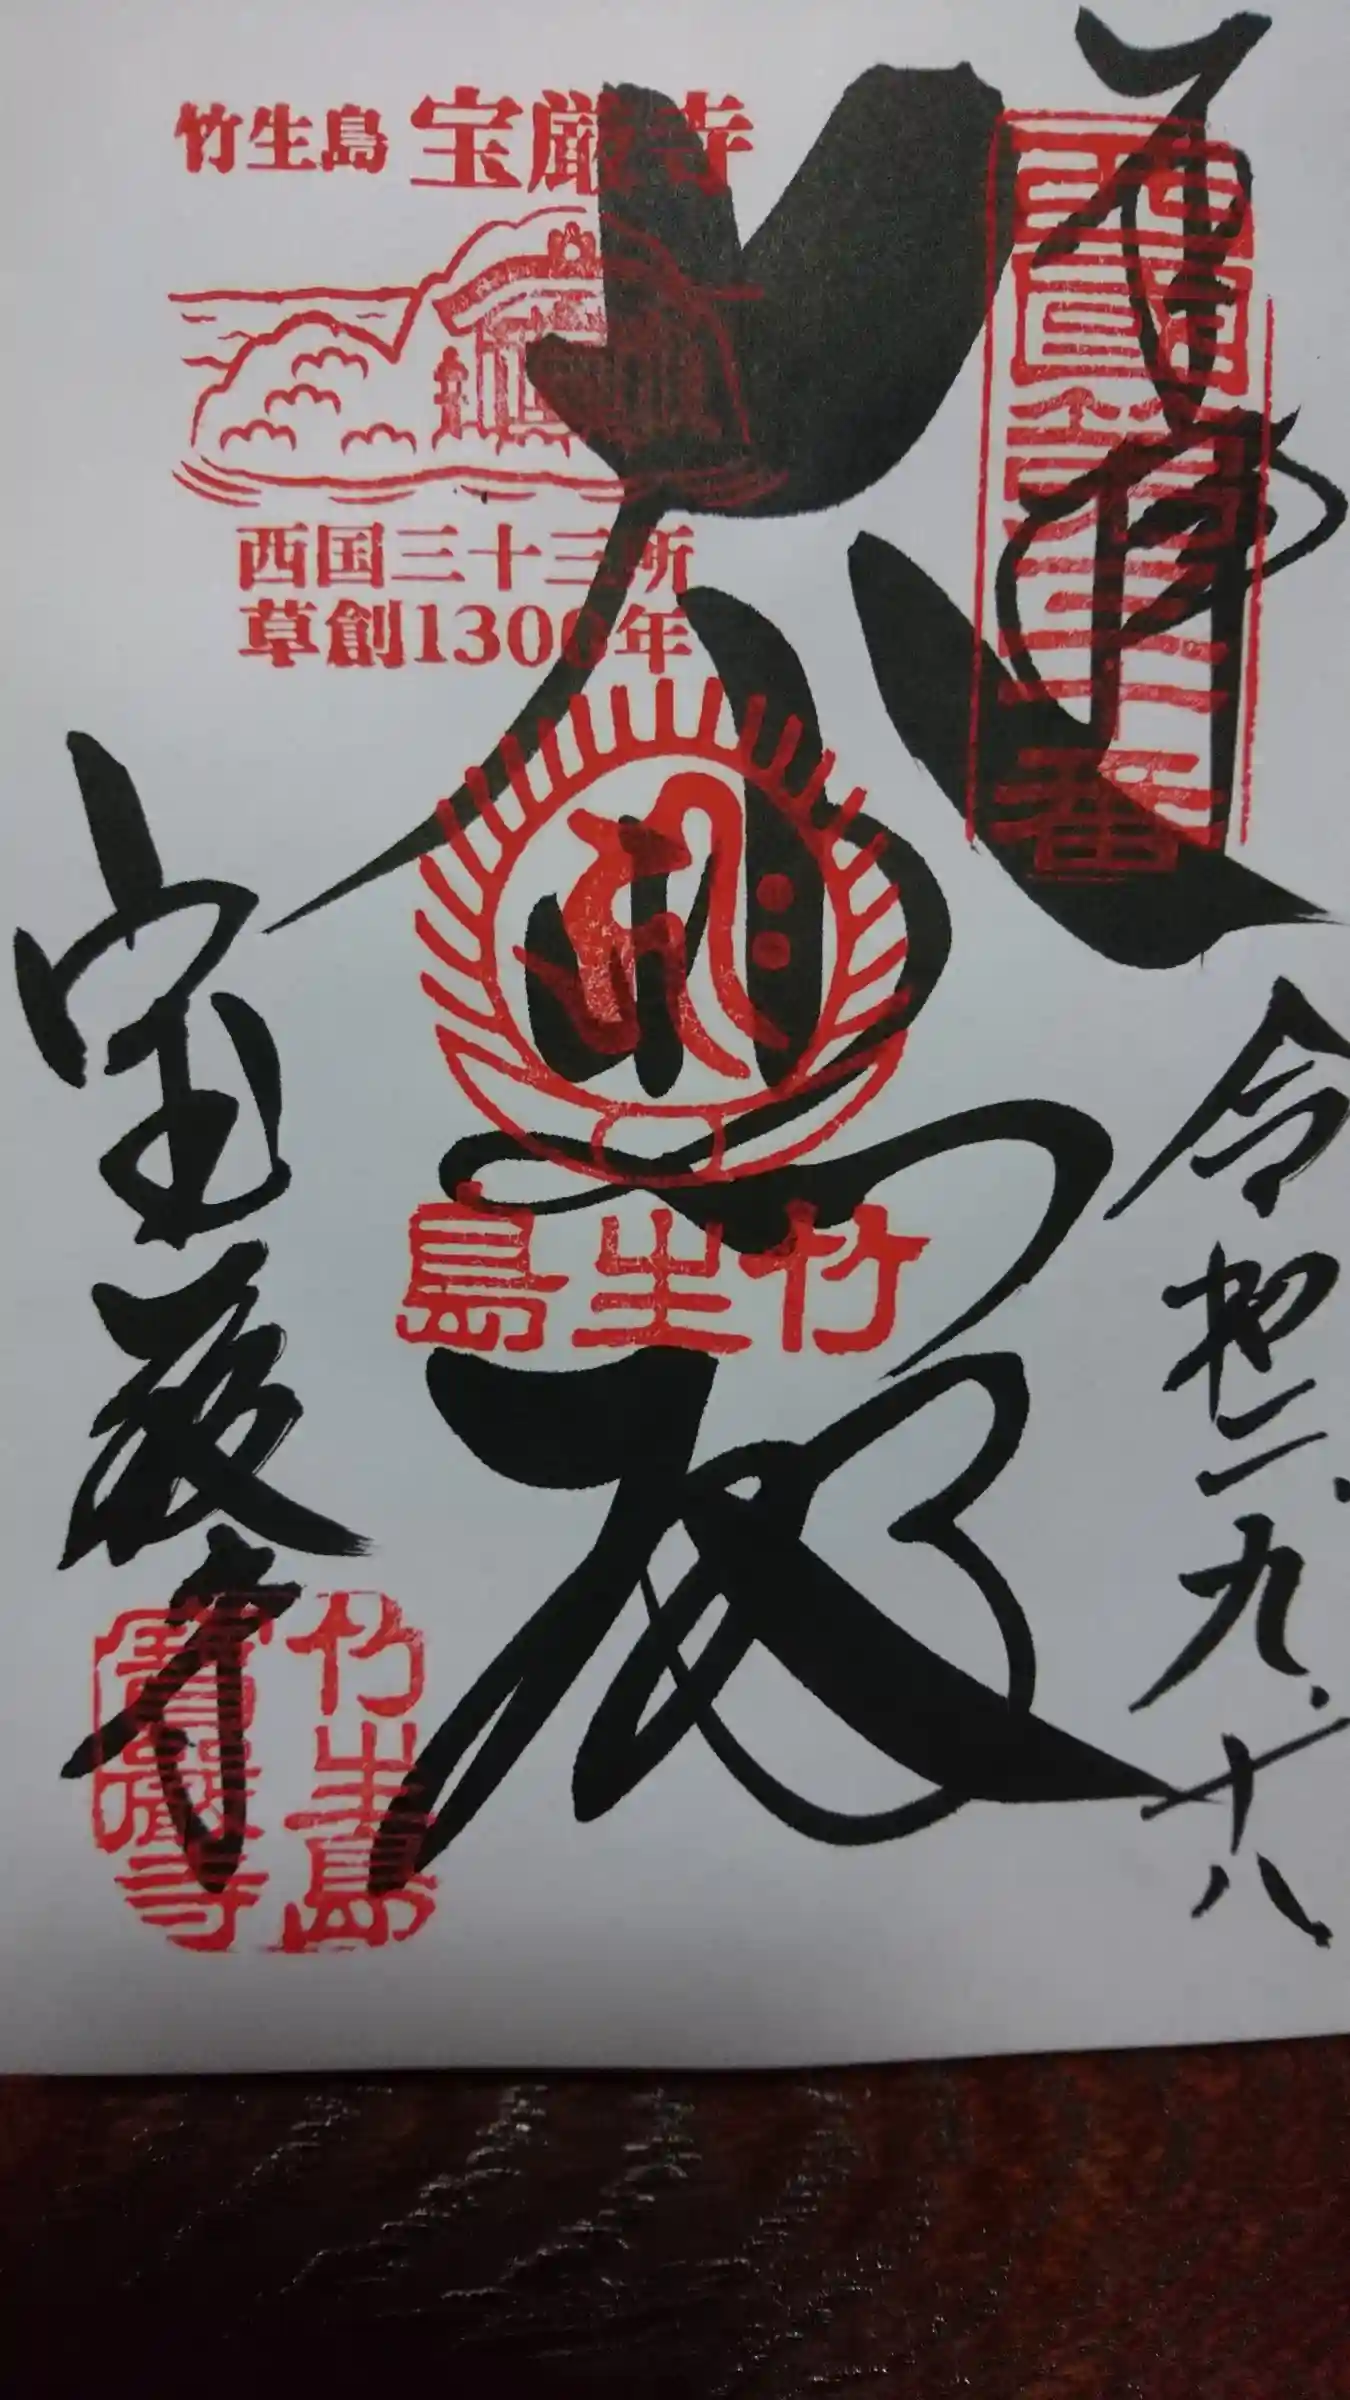 奉拝
西国第三十番
令和二、九、十八
竹生島 宝厳寺
西国三十三所
草創1300年
大悲殿
島生竹
宝厳寺
竹生島
寶嚴寺